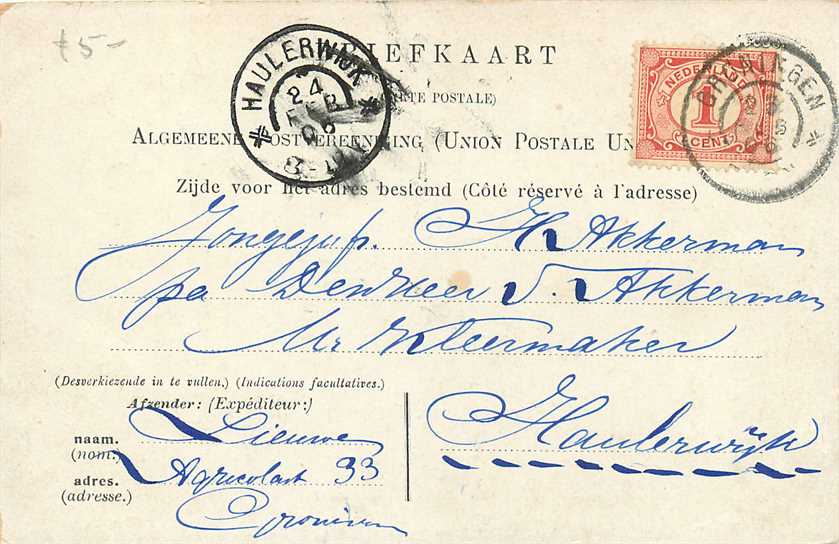 t5-
BRIEFKAART
(CARTE POSTALE)
ALGEMEENE POSTVEREENIGING (UNION POSTALE UN
Zijde voor het adres bestemd (Côté réservé à l'adresse)
HAULERWIJK
24 FEB 06
8-12
NEDERLAND
1
CENT
GRONINGEN
Jongejufr. H. Akkerman
pa Den Heer S. Akkerman
Mr Kleermaker
Haulerwijk
(Desverkiezende in te vullen.) (Indications facultatives.)
Afzender: (Expéditeur:)
naam. Lieuwe
(nom.)
adres. Agricolast 33
(adresse.) Groningen